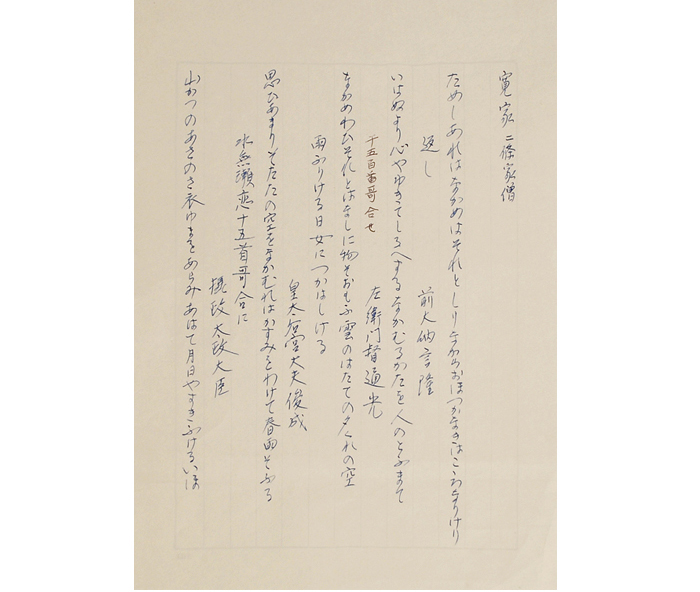 寛家 二條家僧
ためしあれはなかめはそれとしりなからおほつかなきはこころなりけり
返し 前大納言隆
いはぬより心やゆきてしるへするなかむるかたを人のとふまて
千五百番哥合せ 左衛門督通光
なかめわひそれとはなしに物そおもふ雲のはたての夕くれの空
雨ふりける日女につかはしける
皇太后宮大夫俊成
思ひあまりそなたの空をなかむれはかすみをわけて春雨そふる
水無瀬恋十五首哥合に
摂政太政大臣
山かつのあさのさ衣をさをあらみあはて月日やすきふけるいほ